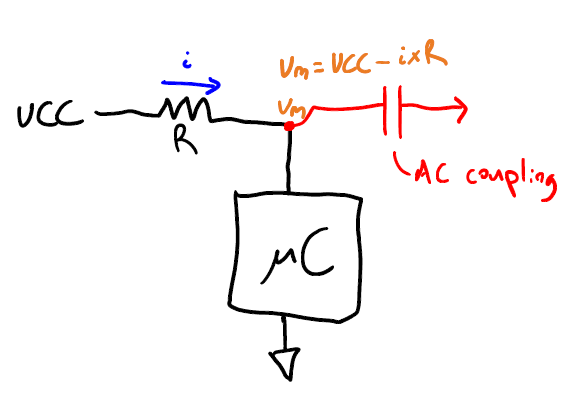 i
Vm = VCC - i×R
VCC
Vm
R
AC coupling
μC